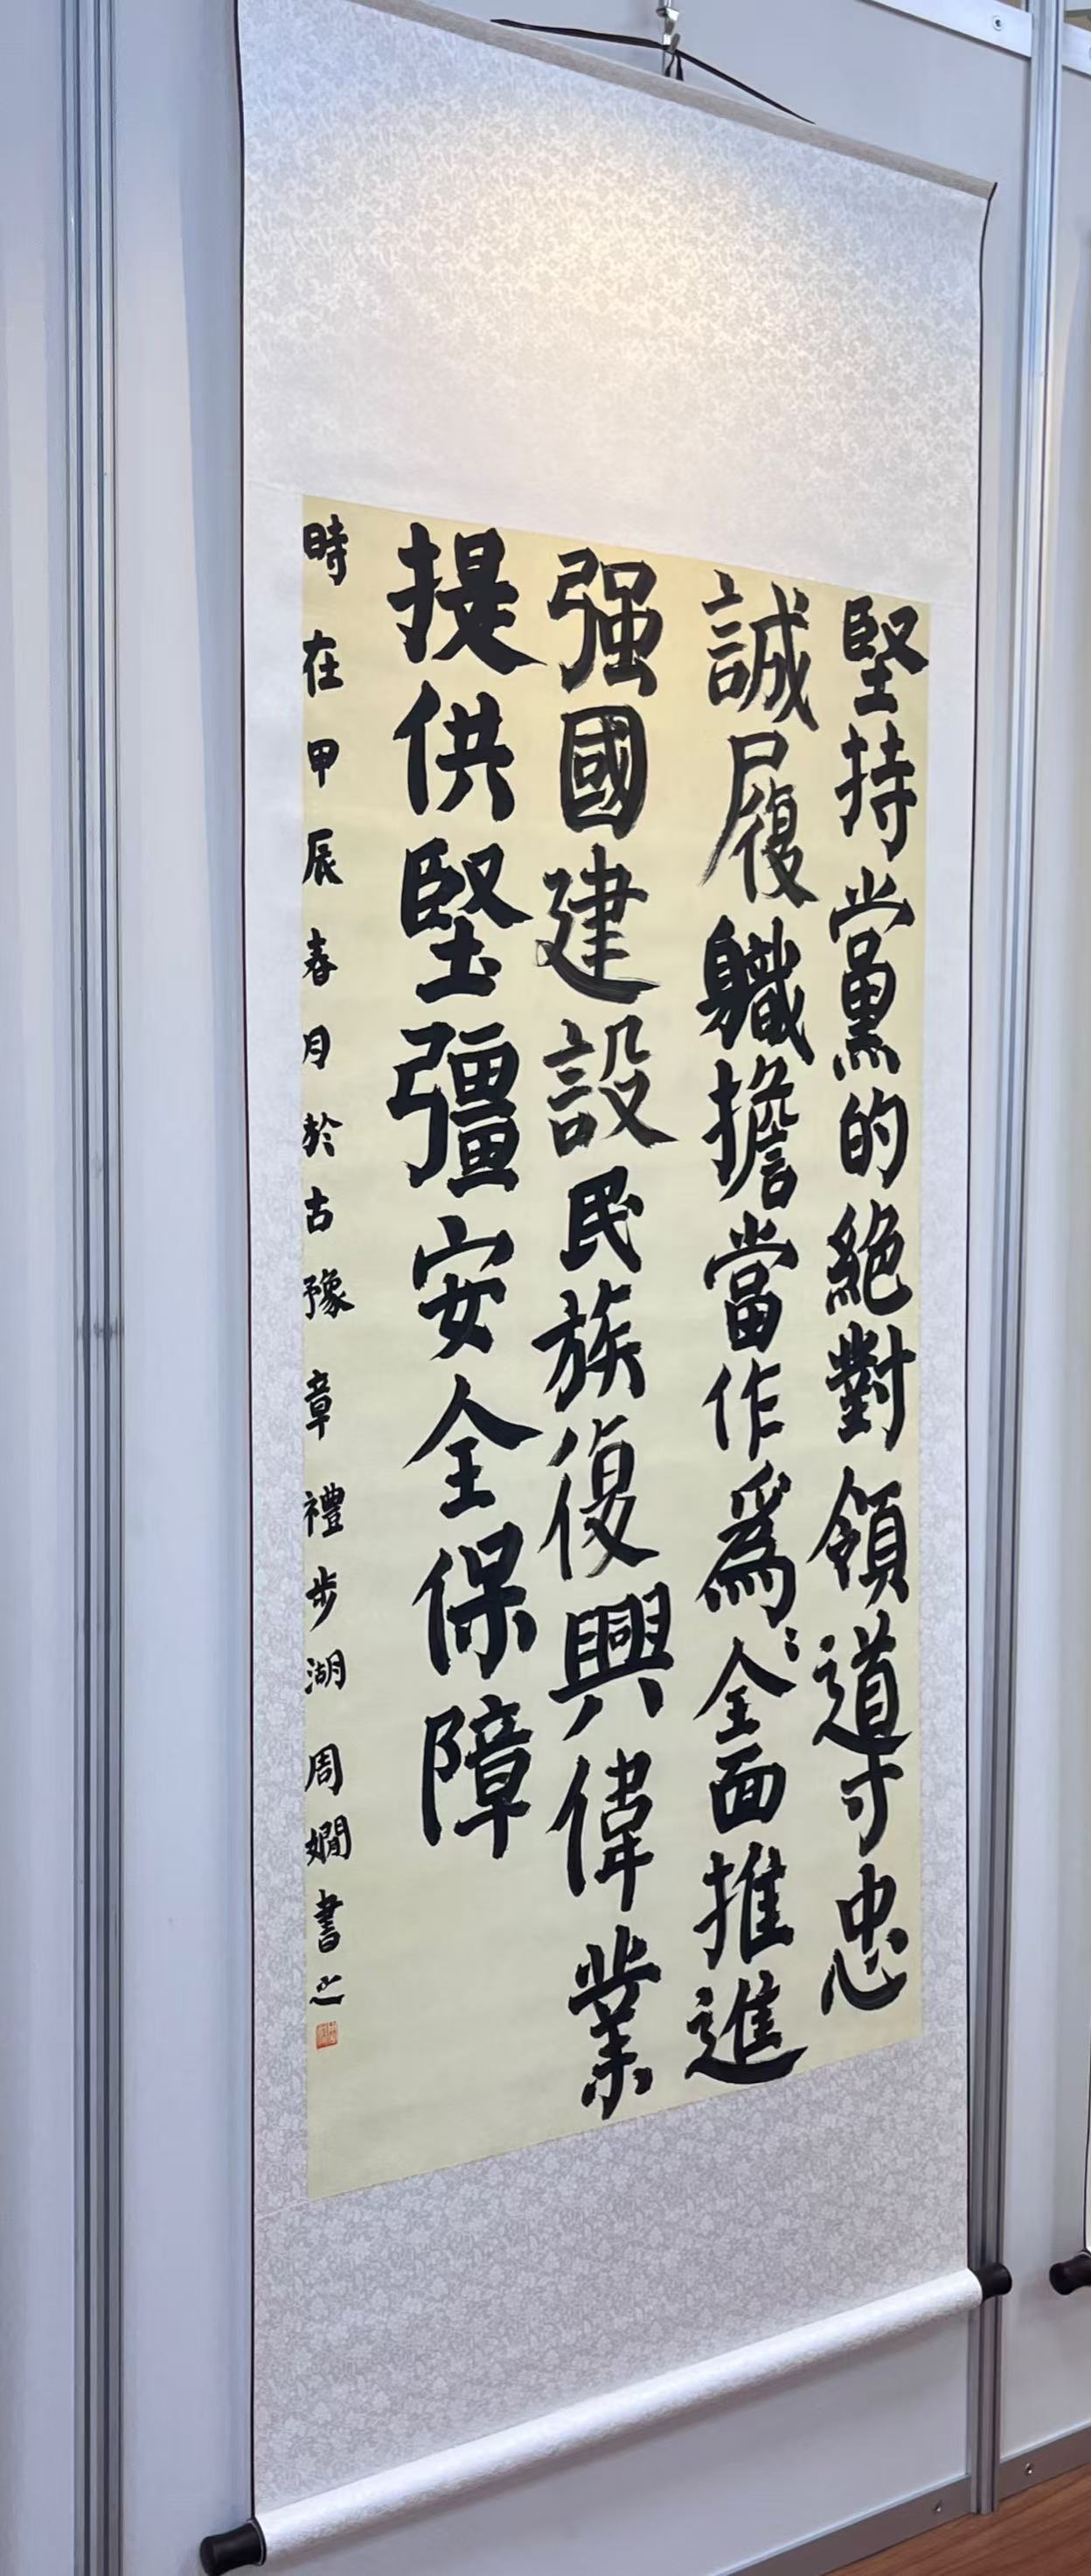 堅持黨的絕對領導忠
誠履職擔當作爲全面推進
强國建設民族復興偉業
提供堅彊安全保障
時在甲辰春月於古豫章禮步湖周嫺書之